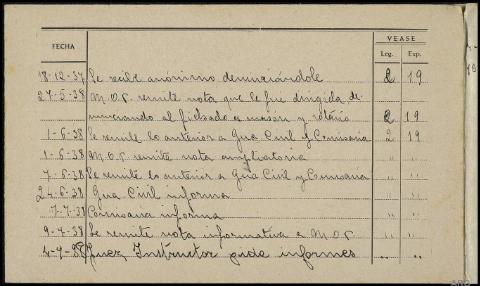 FECHA VEASE
Leg. Exp.
18-12-37 Se recibe anónimo denunciándole 2 19
27-5-38 M.O.P. remite nota que le fué dirigida, de-
nunciando al fichado a mason y rotario 2 19
1-6-38 Se remite lo anterior a Gua Civil y Comisaria 2 19
1-6-38 M.O.P. remite nota ampliatoria " "
7-6-38 Se remite lo anterior a Gua Civil y Comisaria " "
24-6-38 Gua Civil informa " "
7-7-38 Comisaria informa " "
9-7-38 Se remite nota informativa a M.O.P. " "
4-9-38 Juez Instructor pide informes " "